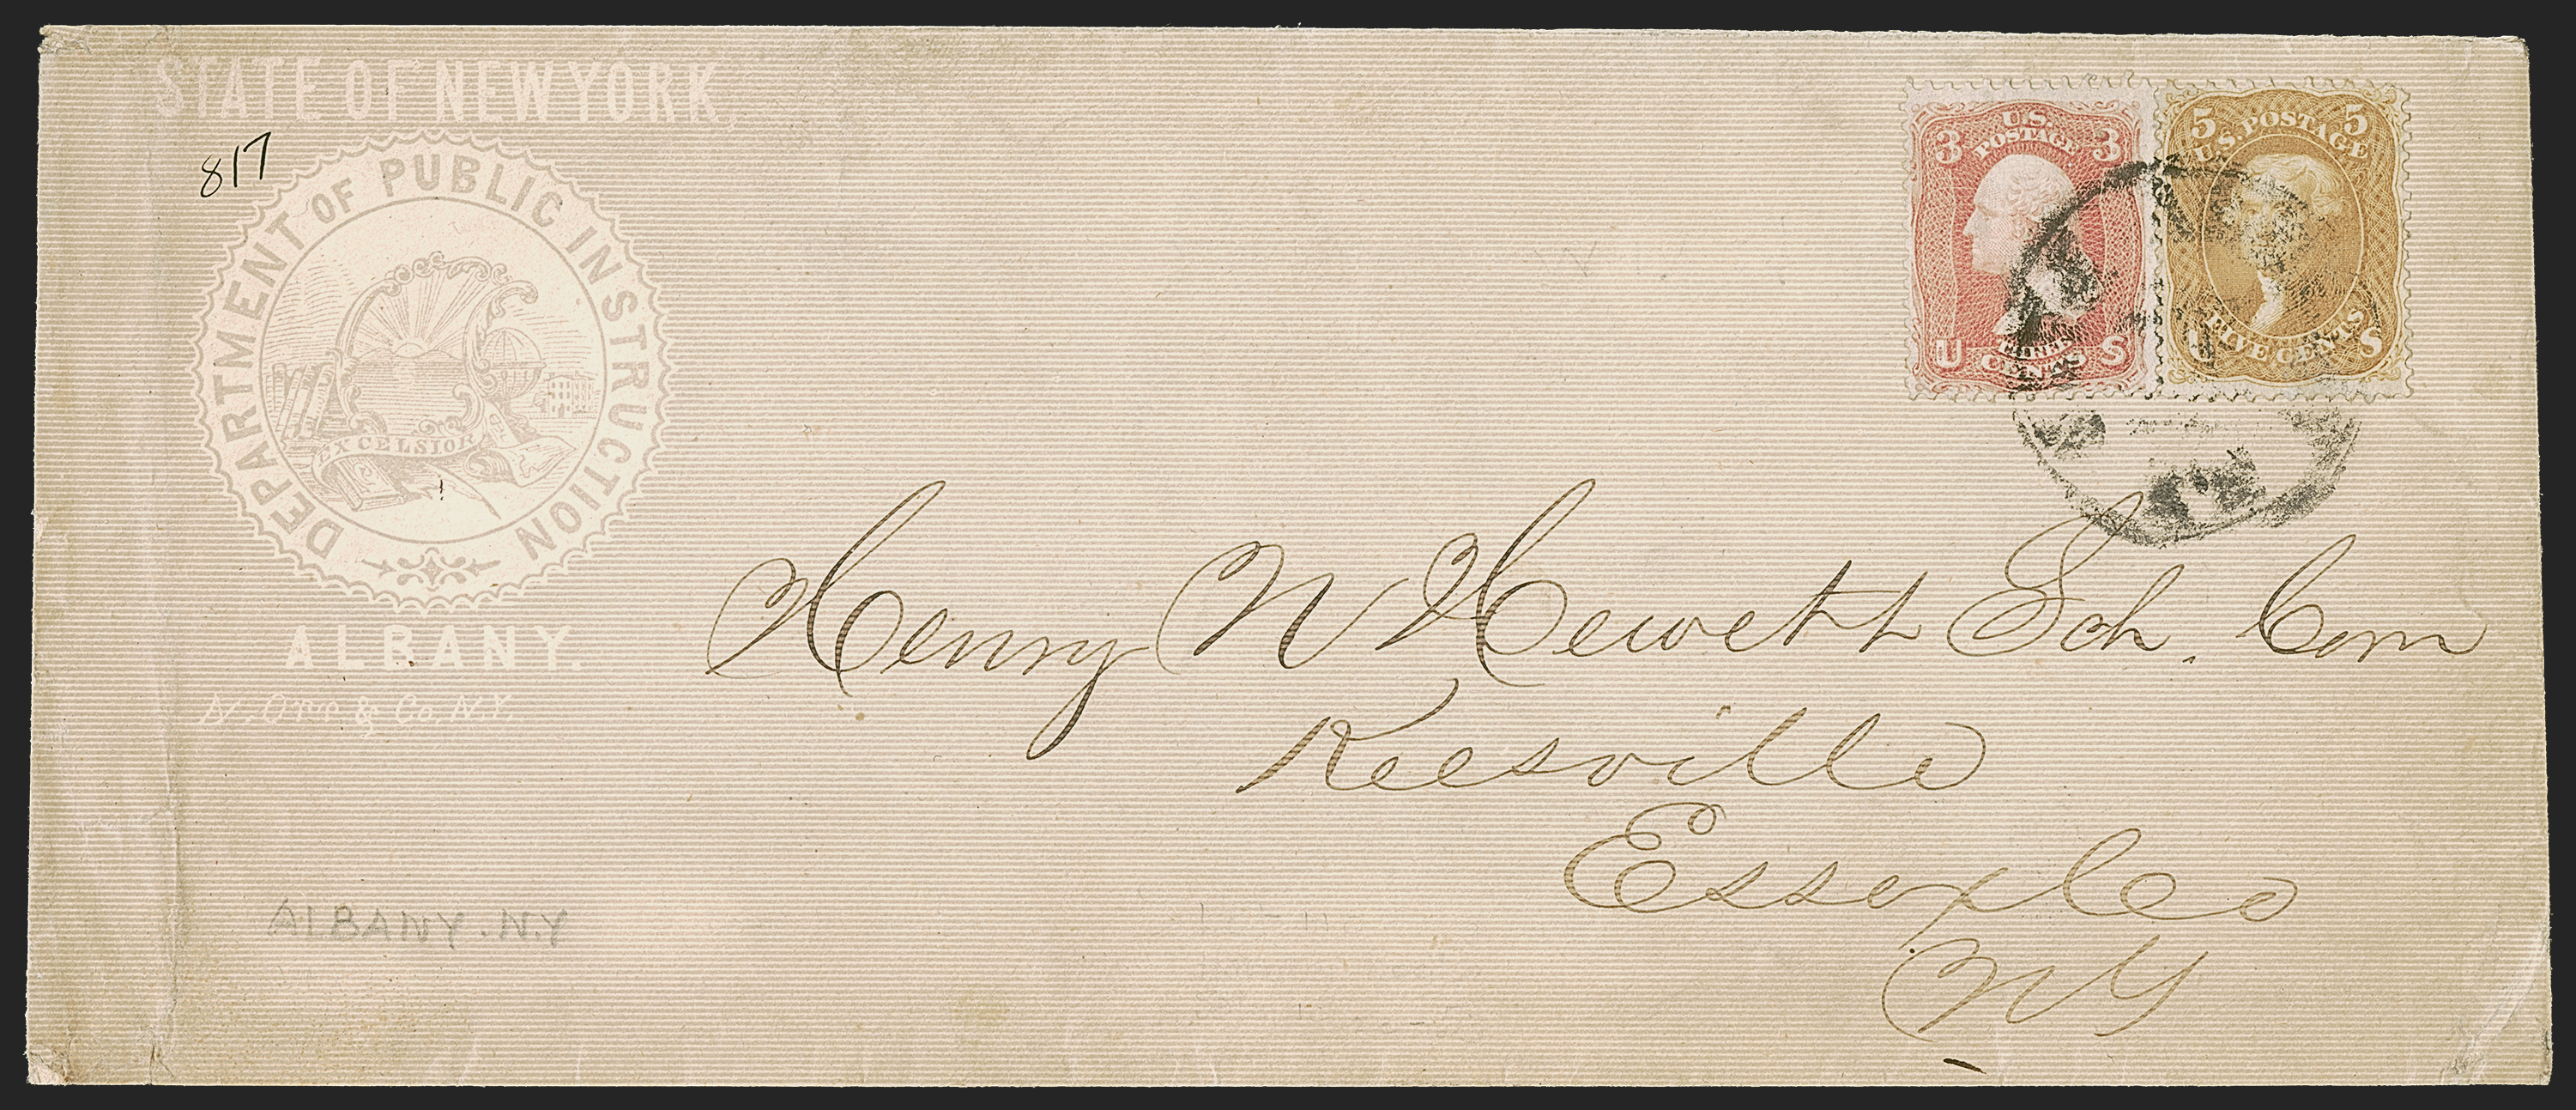 STATE OF NEW YORK,
817
DEPARTMENT OF PUBLIC INSTRUCTION
EXCELSIOR
ALBANY.
N. Orr & Co. N.Y.
3 U.S. POSTAGE 3
THREE CENTS
U S
5 U.S. POSTAGE 5
FIVE CENTS
U S
Henry N Hewett Sch. Com
Keesville
Essex Co
NY
ALBANY. N.Y